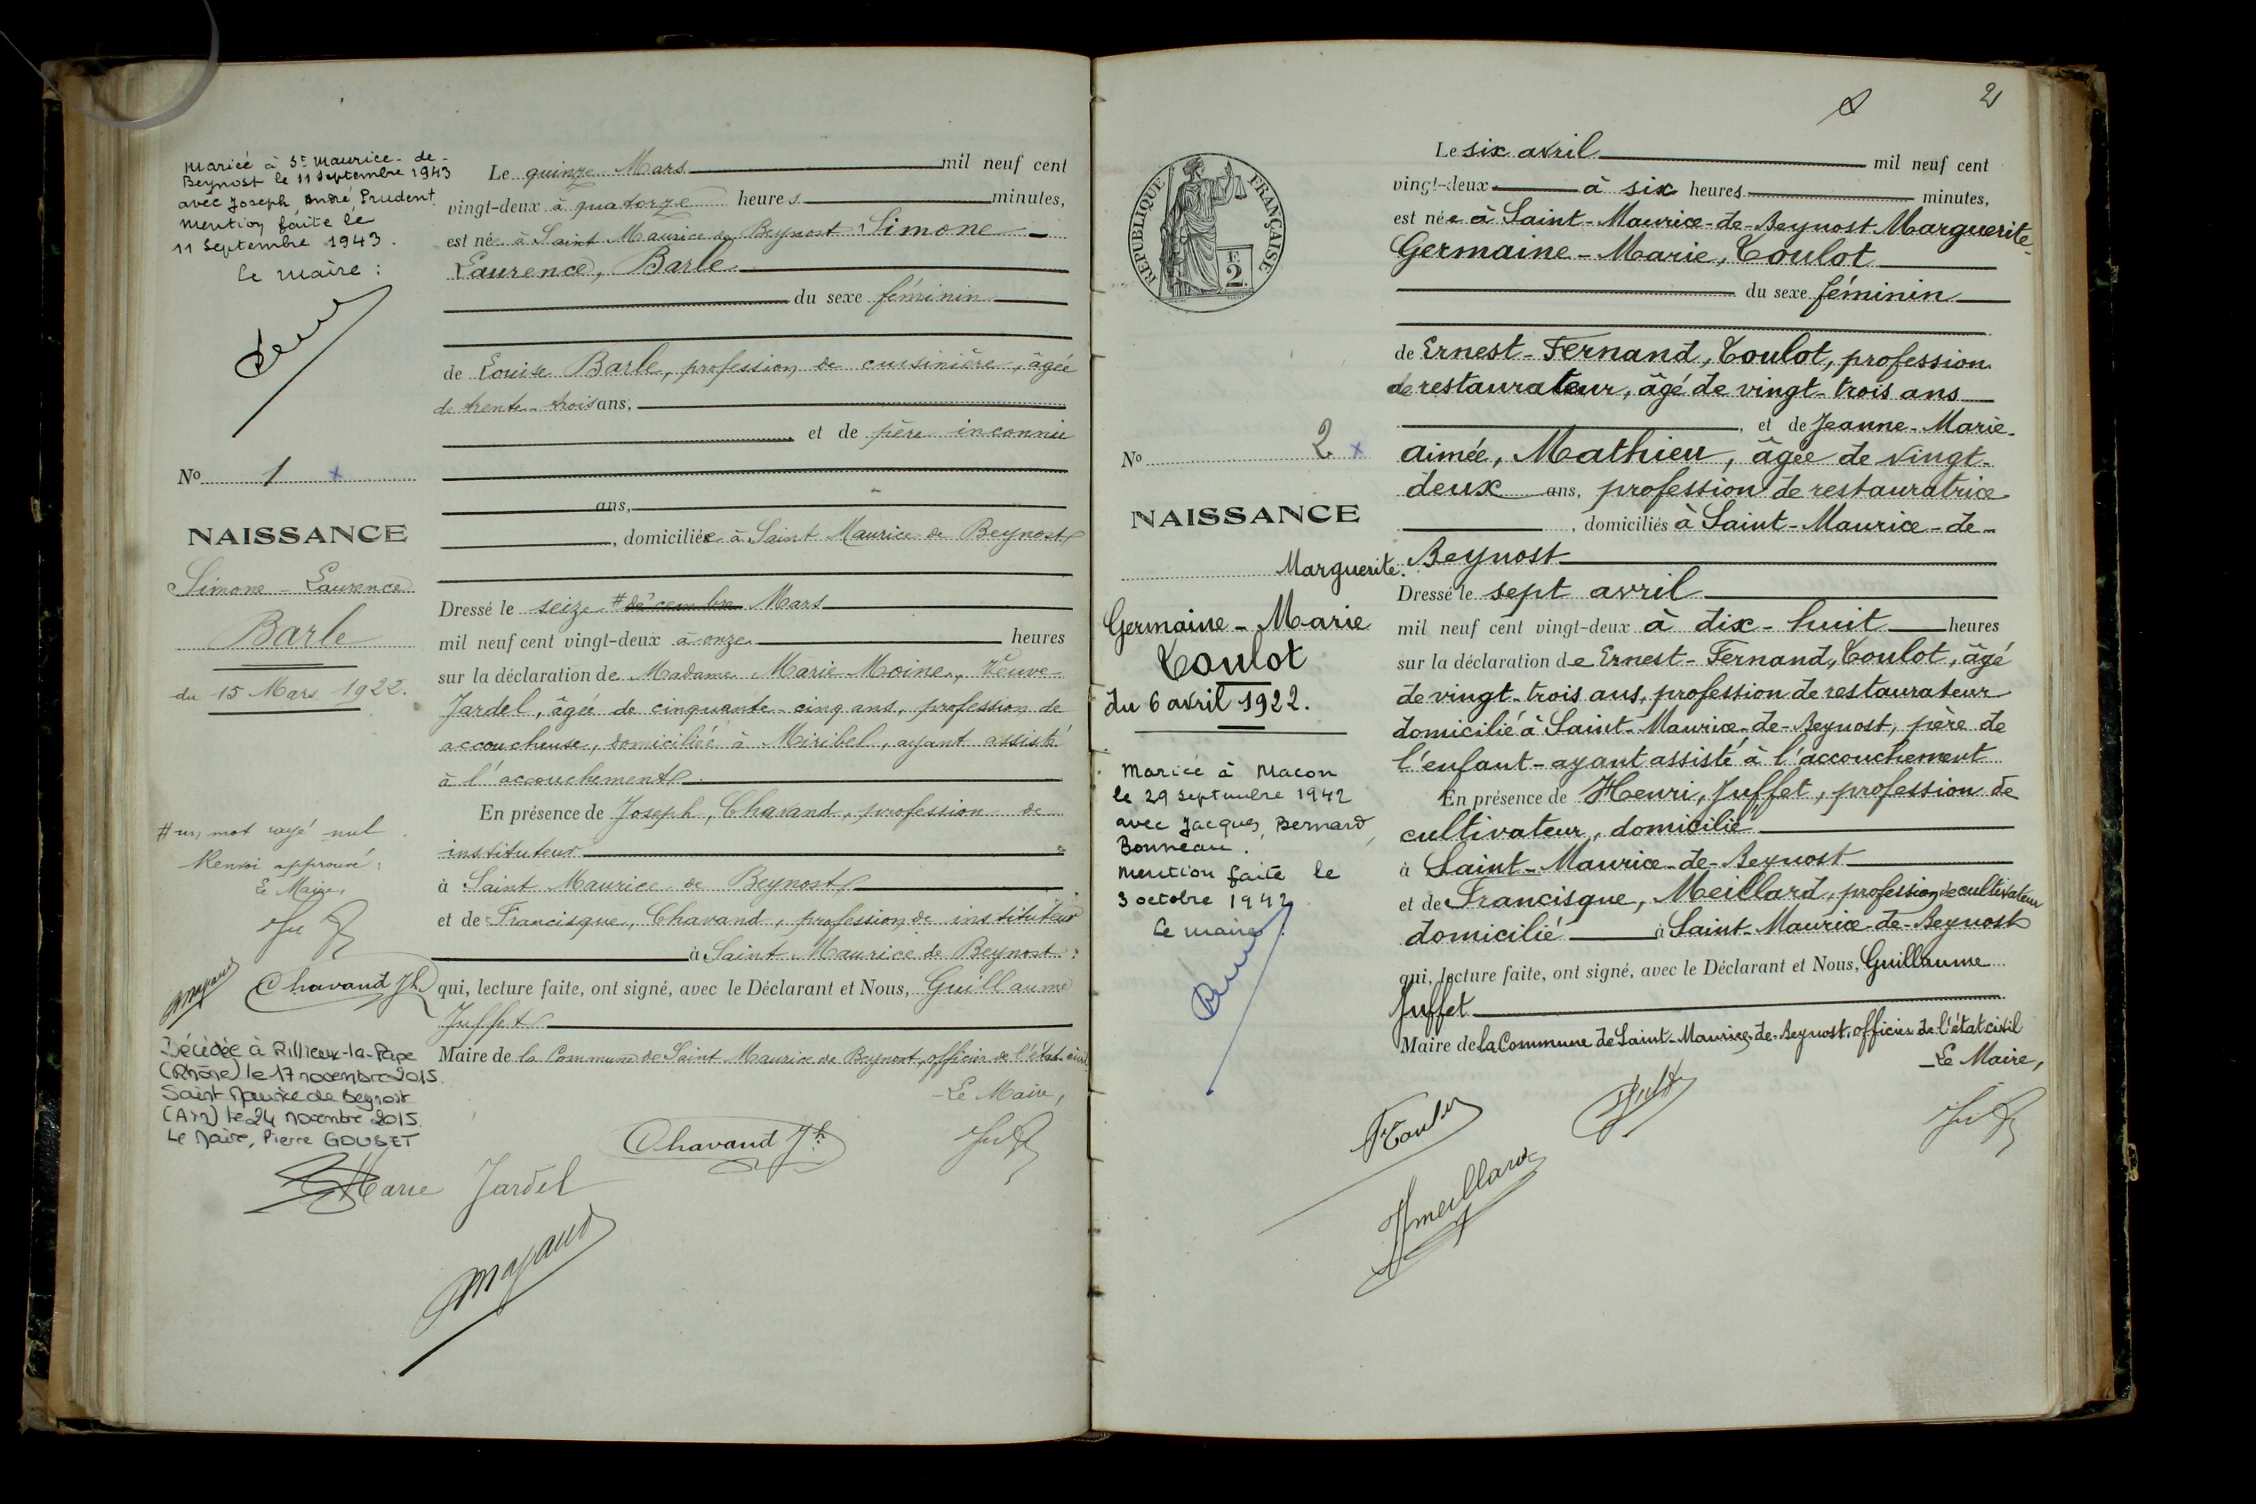 Mariée à St Maurice-de-
Beynost le 11 Septembre 1943
avec Joseph André, Prudent.
Mention faite le
11 Septembre 1943.
Le Maire :
No 1 x
NAISSANCE
Simone - Laurence
Barle
du 15 Mars 1922.
# un mot rayé nul
Renvoi approuvé :
Le Maire,
Chavand Jh
Décédée à Rillieux-la-Pape
(Rhône) le 17 novembre 2015.
Saint Maurice de Beynost
(Ain) le 24 novembre 2015.
Le Maire, Pierre GOUBET
Le quinze Mars mil neuf cent
vingt-deux à quatorze heures minutes,
est née à Saint Maurice de Beynost : Simone -
Laurence, Barle
du sexe féminin
de Louise Barle, profession de cuisinière, âgée
de trente-trois ans,
et de père inconnu
ans,
, domiciliée à Saint Maurice de Beynost
Dressé le seize # décembre Mars
mil neuf cent vingt-deux à onze heures
sur la déclaration de Madame Marie Moine, Veuve
Jardel, âgée de cinquante-cinq ans, profession de
accoucheuse, domiciliée à Miribel, ayant assisté
à l'accouchement
En présence de Joseph, Chavand, profession de
instituteur
à Saint Maurice de Beynost
et de Francisque, Chavand, profession de instituteur
à Saint Maurice de Beynost :
qui, lecture faite, ont signé, avec le Déclarant et Nous, Guillaume
Juffet
Maire de la Commune de Saint Maurice de Beynost, officier de l'état civil
Le Maire,
Chavand Jh
Marie Jardel
2
RÉPUBLIQUE FRANÇAISE
F.
2
No 2 x
NAISSANCE
Marguerite.
Germaine - Marie
Coulot
du 6 avril 1922.
Mariée à Macon
le 29 septembre 1942
avec Jacques, Bernard,
Bonneau.
Mention faite le
3 octobre 1942
Le Maire :
Le six avril mil neuf cent
vingt-deux à six heures minutes,
est née à Saint-Maurice-de-Beynost Marguerite-
Germaine-Marie, Coulot
du sexe féminin
de Ernest-Fernand, Coulot, profession
de restaurateur, âgé de vingt-trois ans
, et de Jeanne-Marie-
aimée, Mathieu, âgée de vingt-
deux ans, profession de restauratrice
, domiciliés à Saint-Maurice-de-
Beynost
Dressé le sept avril
mil neuf cent vingt-deux à dix-huit heures
sur la déclaration de Ernest-Fernand, Coulot, âgé
de vingt-trois ans, profession de restaurateur
domicilié à Saint-Maurice-de-Beynost, père de
l'enfant-ayant assisté à l'accouchement
En présence de Henri, Juffet, profession de
cultivateur, domicilié
à Saint-Maurice-de-Beynost
et de Francisque, Meillard, profession de cultivateur
domicilié à Saint-Maurice-de-Beynost
qui, lecture faite, ont signé, avec le Déclarant et Nous, Guillaume
Juffet
Maire de la Commune de Saint-Maurice-de-Beynost, officier de l'état civil
Le Maire,
Coulot
Fmeillard